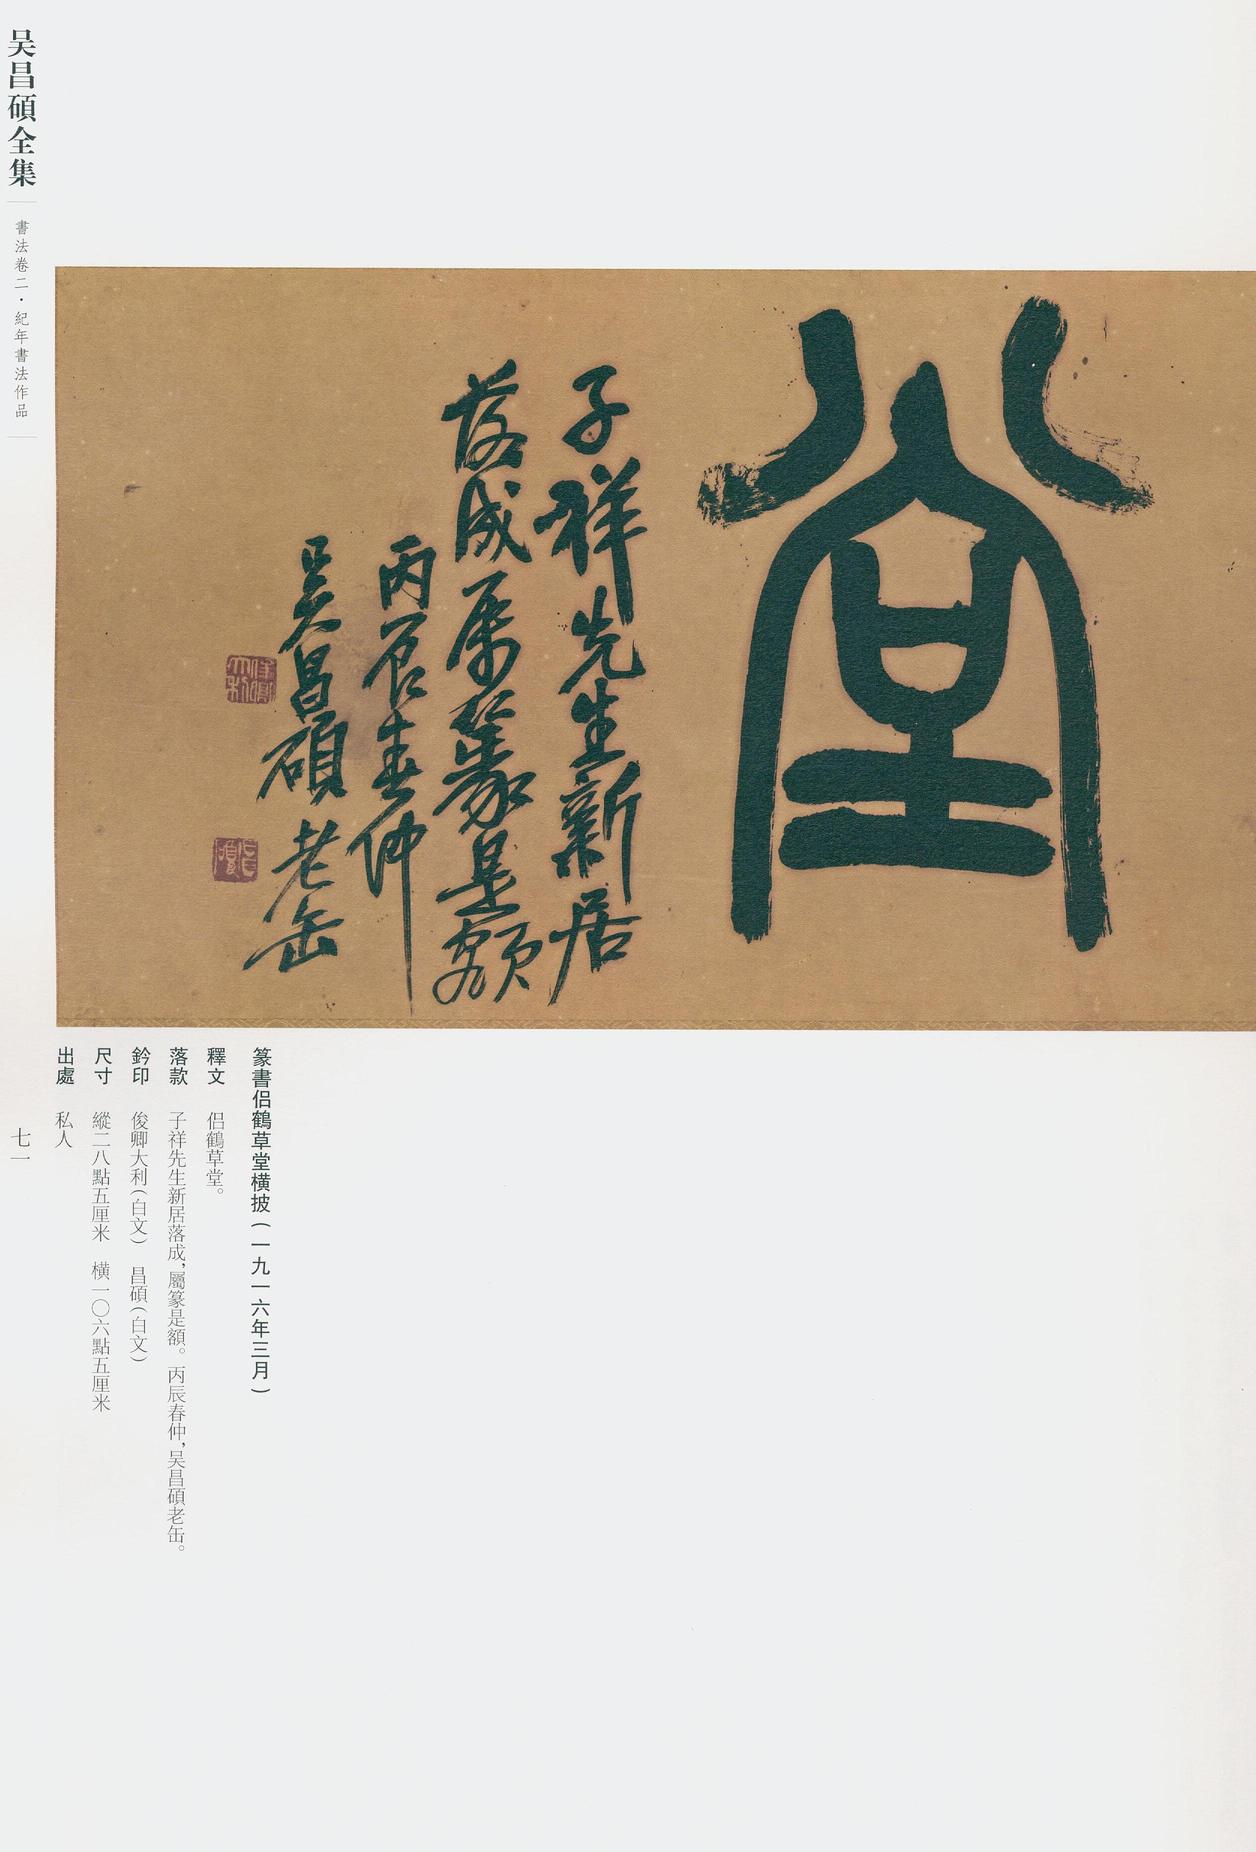 堂
子祥先生新居
落成屬篆是額
丙辰春仲
吴昌碩老缶
俊卿大利
昌碩
篆書侣鶴草堂横披(一九一六年三月)
釋文 侣鶴草堂。
落款 子祥先生新居落成,屬篆是額。丙辰春仲,吴昌碩老缶。
鈐印 俊卿大利(白文) 昌碩(白文)
尺寸 縱二八點五厘米 横一〇六點五厘米
出處 私人
吴昌碩全集
書法卷二·紀年書法作品
七一